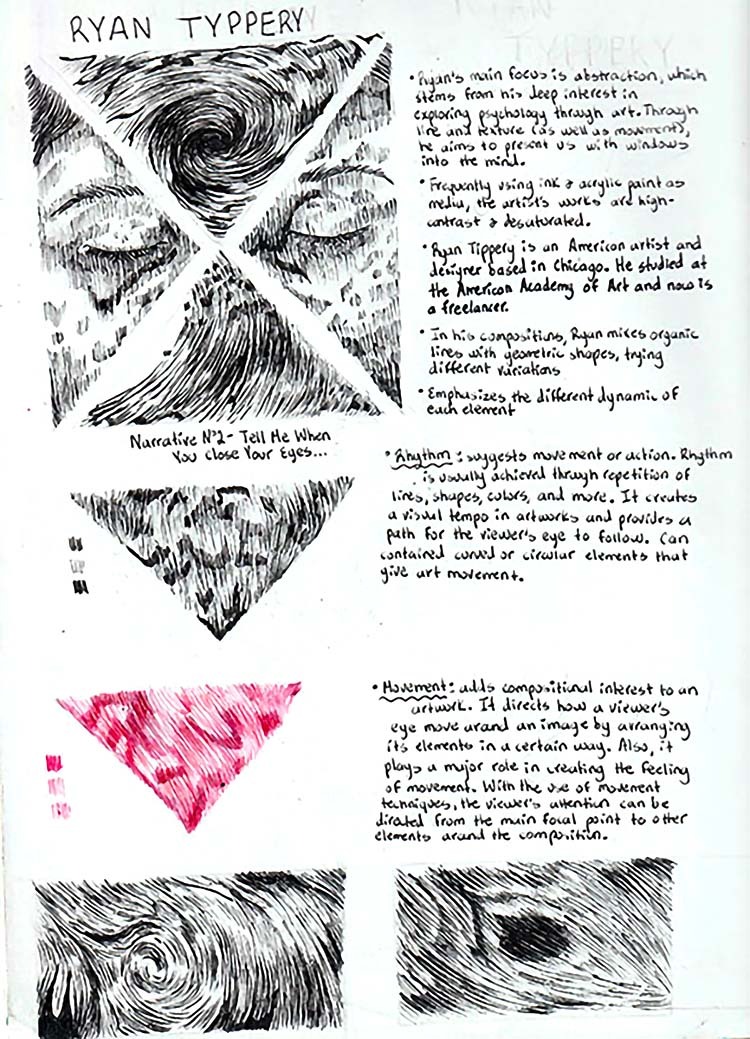 RYAN TYPPERY
• Ryan's main focus is abstraction, which
stems from his deep interest in
exploring psychology through art. Through
line and texture (as well as movement),
he aims to present us with windows
into the mind.
• Frequently using ink & acrylic paint as
media, the artist's works are high-
contrast & desaturated.
• Ryan Tippery is an American artist and
designer based in Chicago. He studied at
the American Academy of Art and now is
a freelancer.
• In his compositions, Ryan mixes organic
lines with geometric shapes, trying
different variations
• Emphasizes the different dynamic of
each element
Narrative Nº2 - Tell Me When
You Close Your Eyes...
• Rhythm: suggests movement or action. Rhythm
is usually achieved through repetition of
lines, shapes, colors, and more. It creates
a visual tempo in artworks and provides a
path for the viewer's eye to follow. Can
contained curved or circular elements that
give art movement.
• Movement: adds compositional interest to an
artwork. It directs how a viewer's
eye move around an image by arranging
its elements in a certain way. Also, it
plays a major role in creating the feeling
of movement. With the use of movement
techniques, the viewer's attention can be
directed from the main focal point to other
elements around the composition.